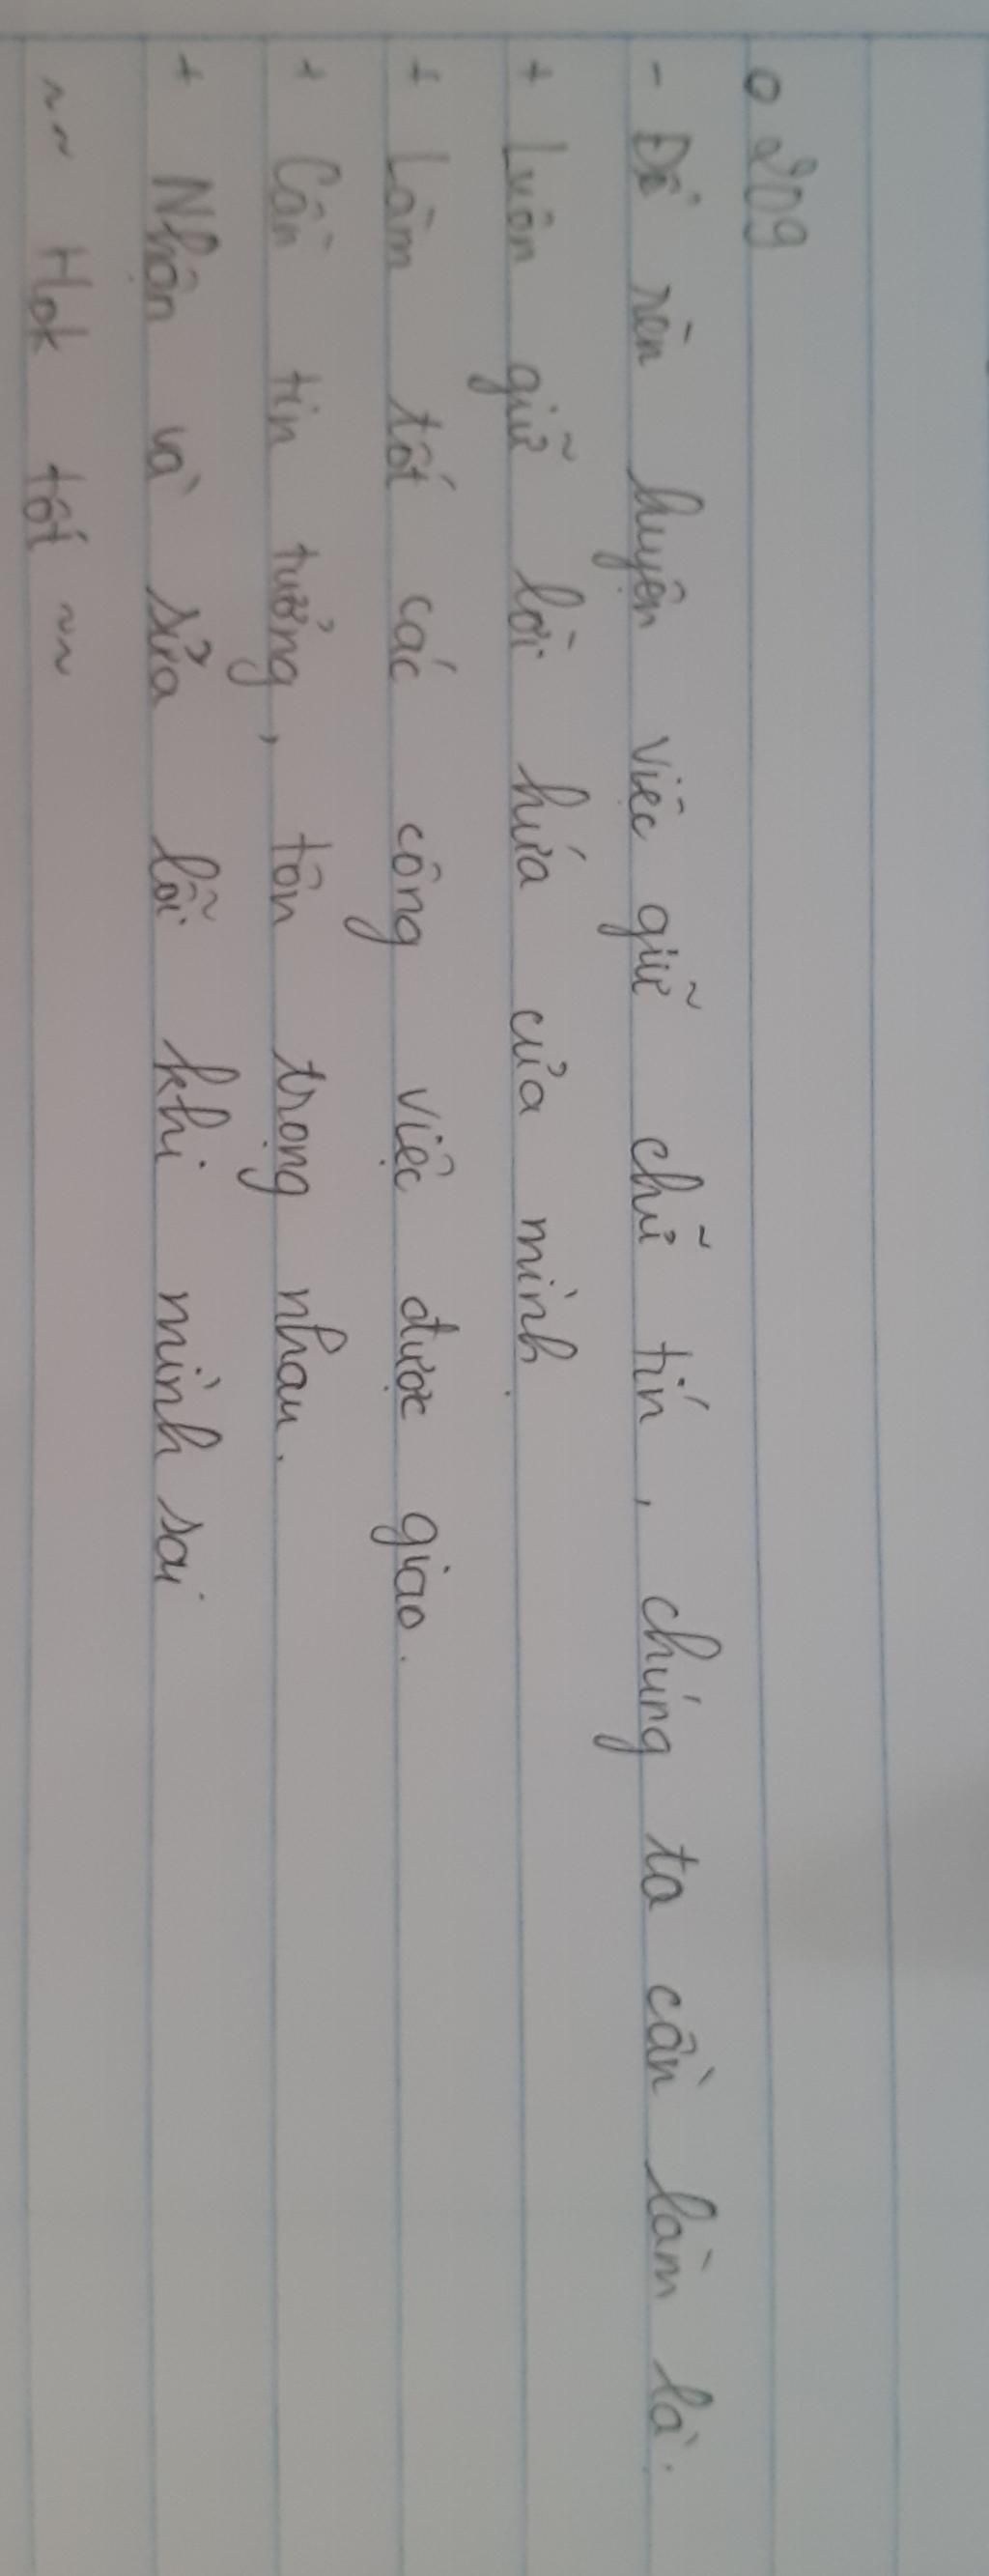 o 209
- Để rèn luyện việc giữ chữ tín, chúng ta cần làm là:
+ Luôn giữ lời hứa của mình.
+ Làm tốt các công việc được giao.
+ Cần tin tưởng, tôn trọng nhau.
+ Nhận và sửa lỗi khi mình sai
~~ Hok tốt ~~